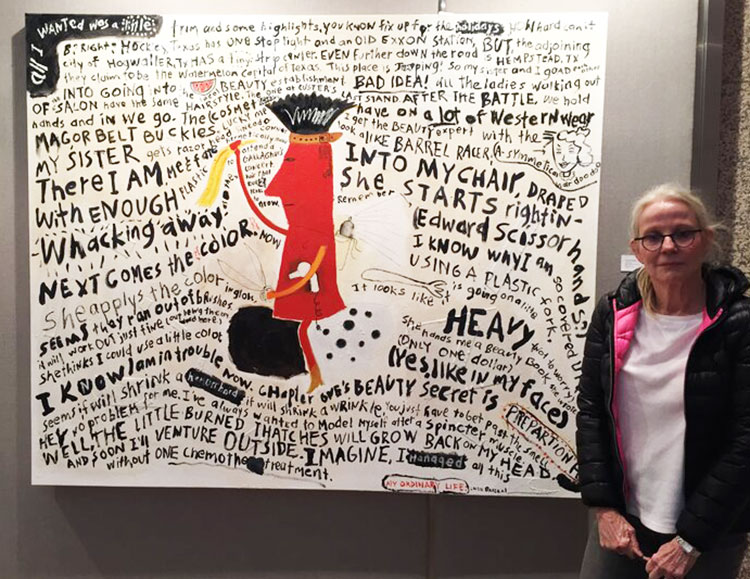 WANTED was a little
trim and some highlights, you know fix up for the Holidays
I'll
BE Right! Hockley, Texas has ONE stop light and an OLD EXXON Station, BUT, the adjoining
city of Hogwaller, TX HAS a tiny strip center. EVEN further down the road is HEMPSTEAD, TX
they claim to be the Watermelon capital of Texas. This place is JUMPING! So my sister and I
INTO GOING into the BEAUTY establishment. BAD IDEA! All the ladies working out
OF SALON have the same HAIRSTYLE. The one at CUSTERS LAST STAND AFTER THE BATTLE. We hold
hands and in we go. The Cosmo have on a lot of Western Wear
MAGOR BELT BUCKLES. get the BEAUTY expert with the
MY SISTER gets razor look alike BARREL RACER, A symmetrical hair doo doo
There I AM, INTO MY CHAIR, DRAPED
With ENOUGH PLASTIC to attend a GALLAGHER CONCERT She STARTS right in-
-Whacking away! Remember (Edward Scissor hands)
NEXT Comes the COLOR. NOW I KNOW WHY I AM so covered up
She applies the color USING A PLASTIC fork.
SEEMS they ran out of Brushes It looks like it is going on a little
it will work out just fine HEAVY Not to worry!
She thinks I could use a little color She hands me a Beauty Book
(ONLY ONE dollar)
I KNOW I am in trouble NOW. CHapter ONE'S BEAUTY Secret is (yes, like in my face)
Seems if will Shrink a hemorrhoid it will shrink a WRINKLE. You just have to get past the smell PREPARTION H
HEY no problem for me. I've always wanted to Model Myself after a Spincter Muscle
WELL THE LITTLE BURNED THATCHES WILL GROW BACK ON MY HEAD.
AND SOON I'll VENTURE OUTSIDE. IMAGINE, I Managed all this
without ONE chemotherapy treatment.
MY ORDINARY LIFE!